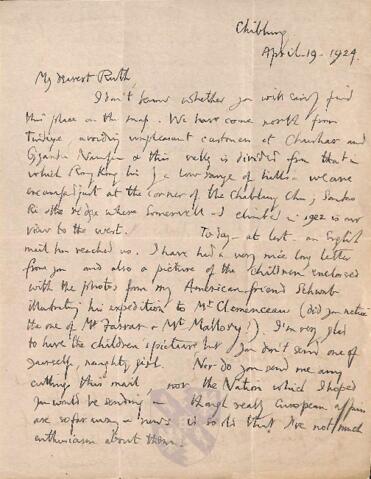 Chiblung
April 19 - 1924.
My dearest Ruth
I don't know whether you will easily find
this place on the map. We have come north from
avoiding unpleasant customers at and
& this valley is divided from that in
which lies by a low range of hills. We are
encamped just at the corner of the Chiblung Chu;
Ri & the ridge where Somervell & I climbed in 1922 is our
view to the west. Today - at last - an English
mail has reached us. I have had a very nice long letter
from you and also a picture of the children enclosed
with the photos from my American friend Schwab
illustrating his expedition to Mt Clemenceau (did you notice
the one of Mt Farrar & Mt Mallory!). I'm very glad
to have the children's picture but you don't send one of
yourself, naughty girl. Nor do you send me any
cuttings this mail nor the Nation which I hoped
you would be sending - though really European affairs
are so far away & news is so old that I've not much
enthusiasm about them.